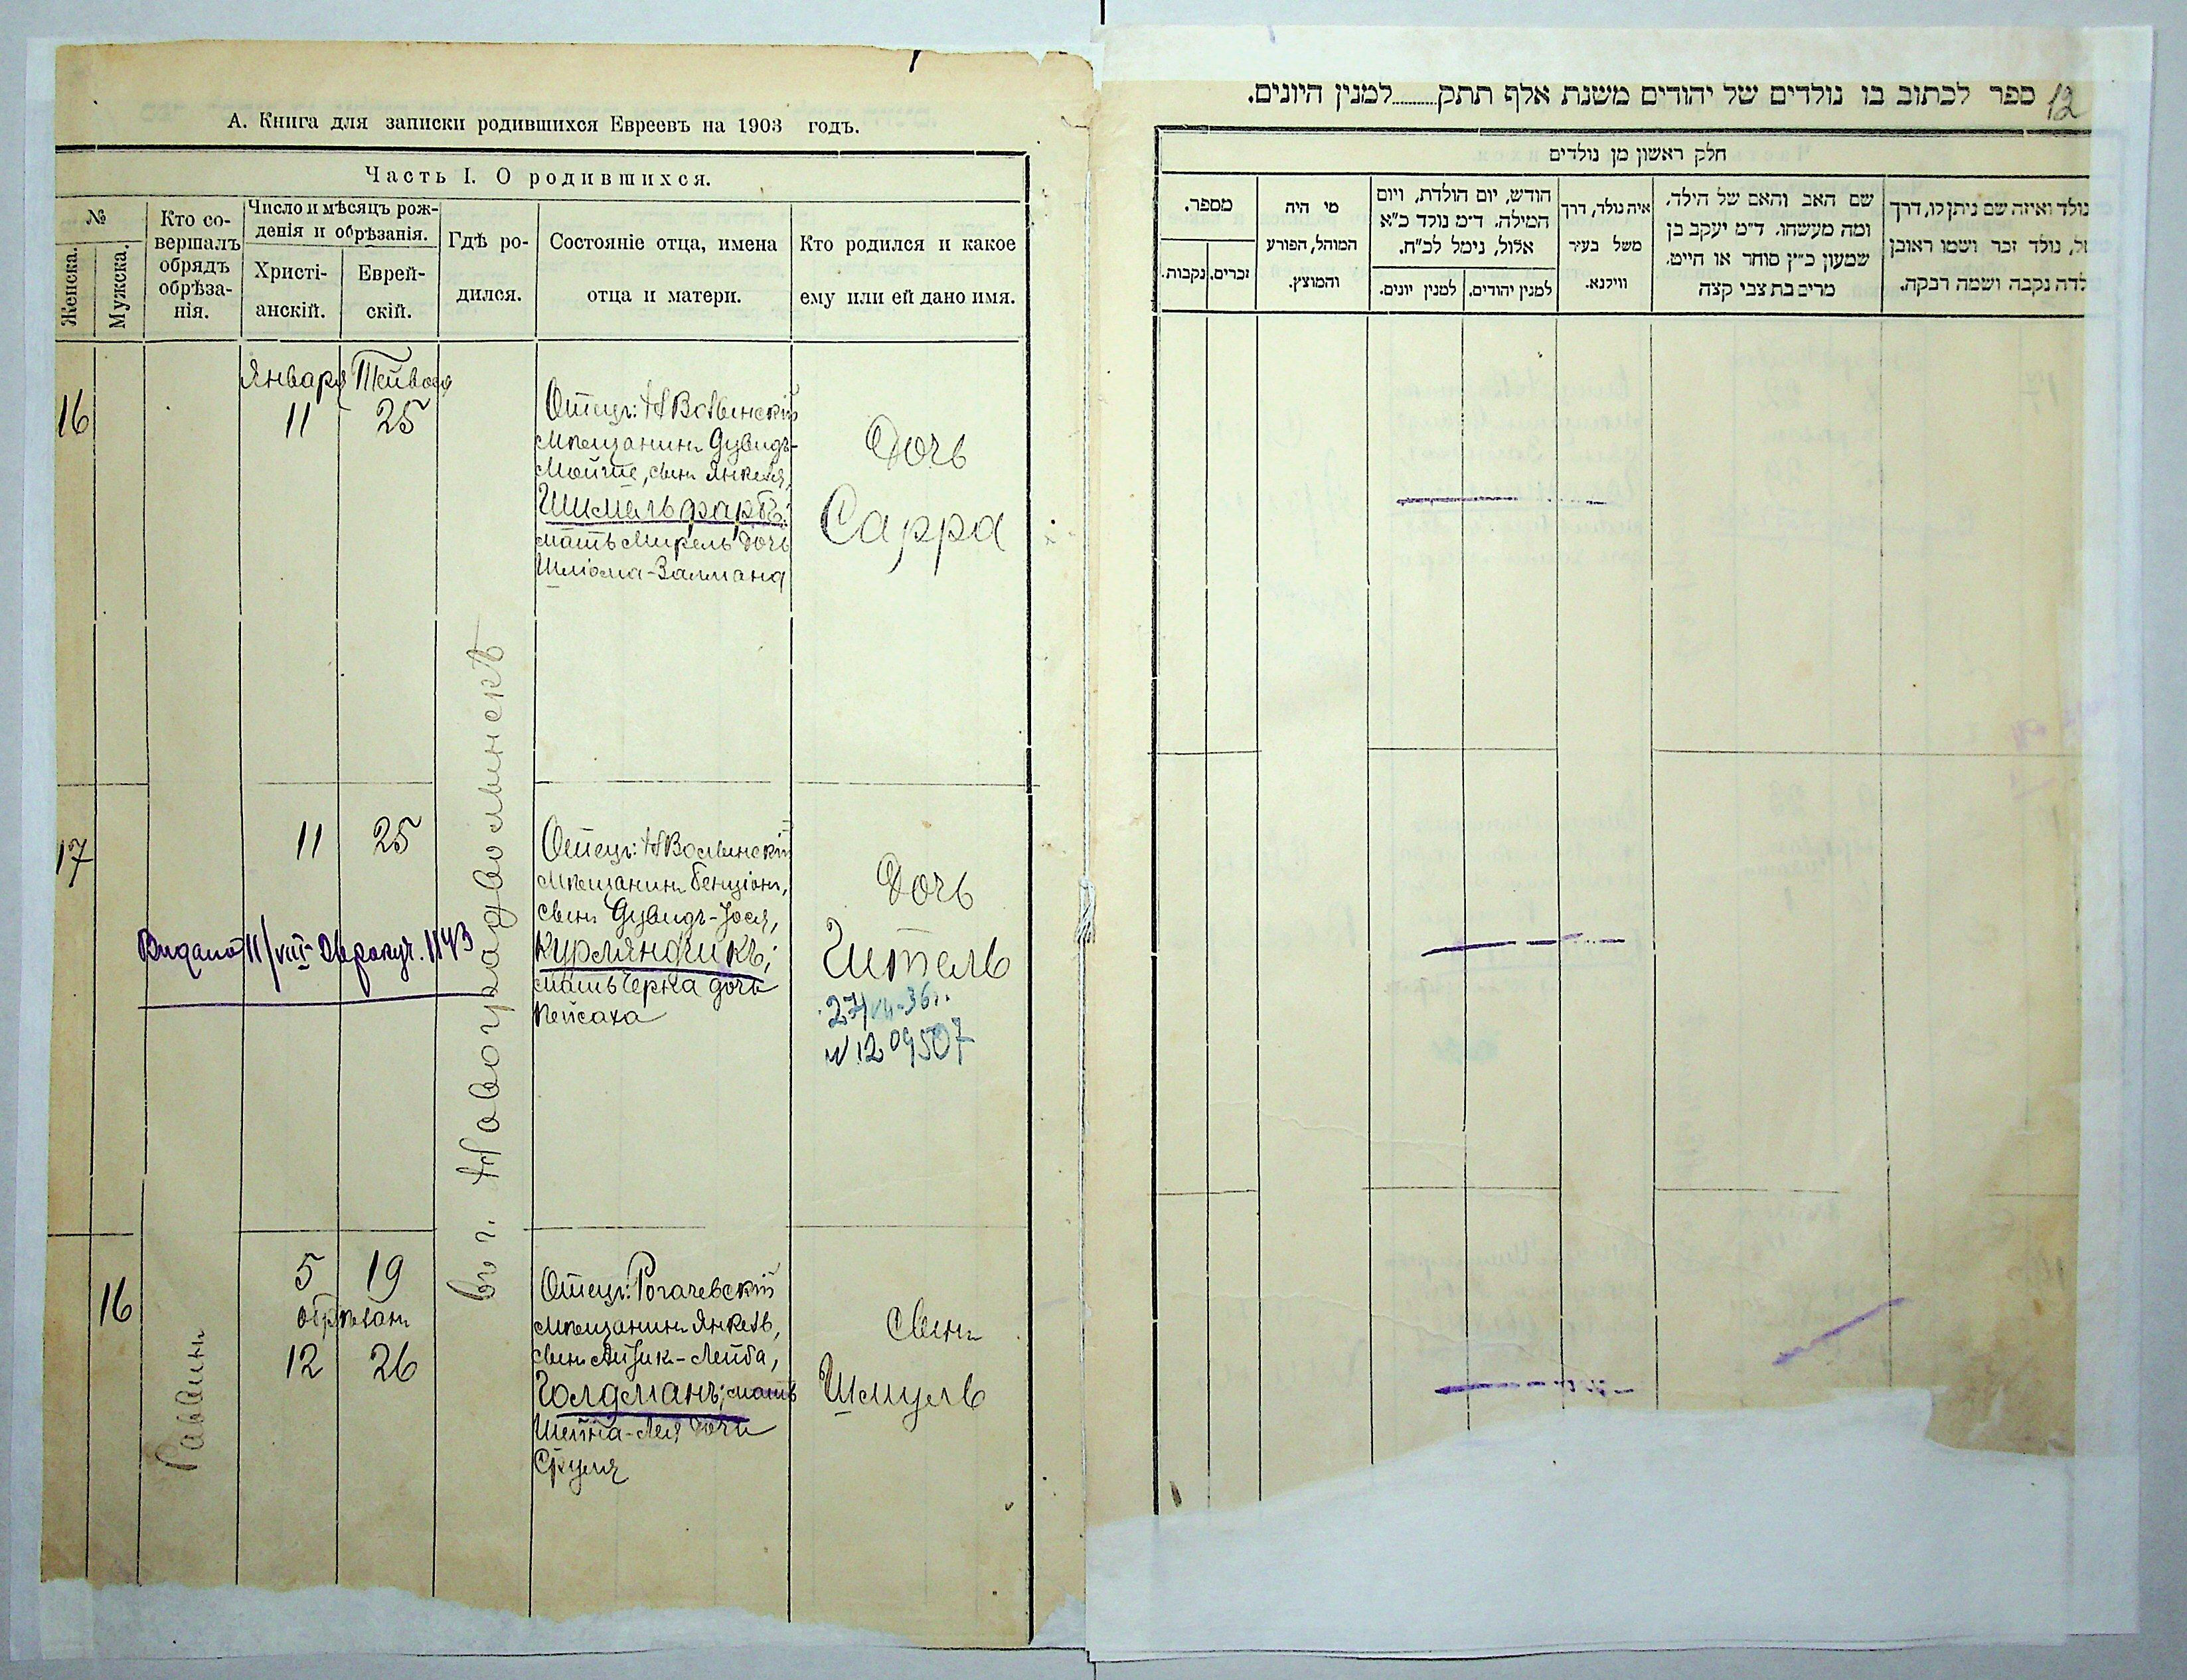 А. Книга для записки родившихся Евреевъ на 1903 годъ.
Часть I. О родившихся.
№
Женска.
Мужска.
Кто со-
вершалъ
обрядъ
обрѣза-
нія.
Число и мѣсяцъ рож-
денія и обрѣзанія.
Христі-
анскій.
Еврей-
скій.
Гдѣ ро-
дился.
Состояніе отца, имена
отца и матери.
Кто родился и какое
ему или ей дано имя.
Января
11
25
16
Отецъ: НВолынскій
мѣщанинъ Дувидъ-
Мойше, сынъ Янкеля,
Шимельфарбъ;
мать Мирель дочь
Шліома-Залмана
Дочь
Сарра
17
11 25
Отецъ: НВолынскій
мѣщанинъ Бенціонъ,
сынъ Дувидъ-Йося,
Курляндчикъ;
мать Черка дочь
Пейсаха
Дочь
Гитель
27/VII-36г.
№ 1209507
Видано 11/VIII 1143
въ г. Новоградволынскѣ
16
Раввинъ
5 19
обрѣзанъ
12 26
Отецъ: Рогачевскій
мѣщанинъ Янкель,
сынъ Айзик-Лейба,
Голдманъ; мать
Шейна-Лея дочь
Сруля
Сынъ
Шмуль
12
ספר לכתוב בו נולדים של יהודים משנת אלף תתק..........למנין היונים.
חלק ראשון מן נולדים
נולד ואיזה שם ניתן לו, דרך
ל, נולד זכר ושמו ראובן
לדה נקבה ושמה רבקה.
שם האב והאם של הילד,
ומה מעשהו. ד״מ יעקב בן
שמעון כ״ץ סוחר או חייט,
מרים בת צבי קצה
איה נולד, דרך
משל בעיר
ווילנא.
חודש, יום הולדת, ויום
המילה. ד״מ נולד כ״א
אלול, נימל לכ״ח.
למנין יהודים.
למנין יונים.
מי היה
המוהל, הפורע
והמוצץ.
מספר.
זכרים.
נקבות.